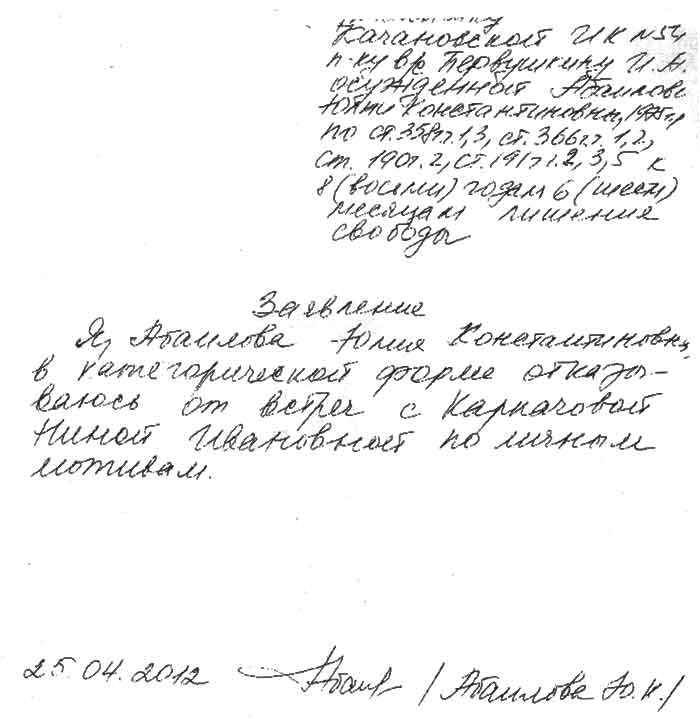 Качановской ИК №54
п-ку в/с Первушкину И.А.
осужденной Абаилово
Юлии Константиновны, 1975 г.р
по ст. 358 ч. 1,3, ст. 366 ч. 1,2,
ст. 190 ч. 2, ст. 191 ч. 2, 3, 5 к
8 (восьми) годам 6 (шести)
месяцам лишения
свободы
Заявление
Я, Абаилова Юлия Константиновна,
в категорической форме отказы-
ваюсь от встреч с Карпачовой
Ниной Ивановной по личным
мотивам.
25.04.2012 / Абаилова Ю.К./